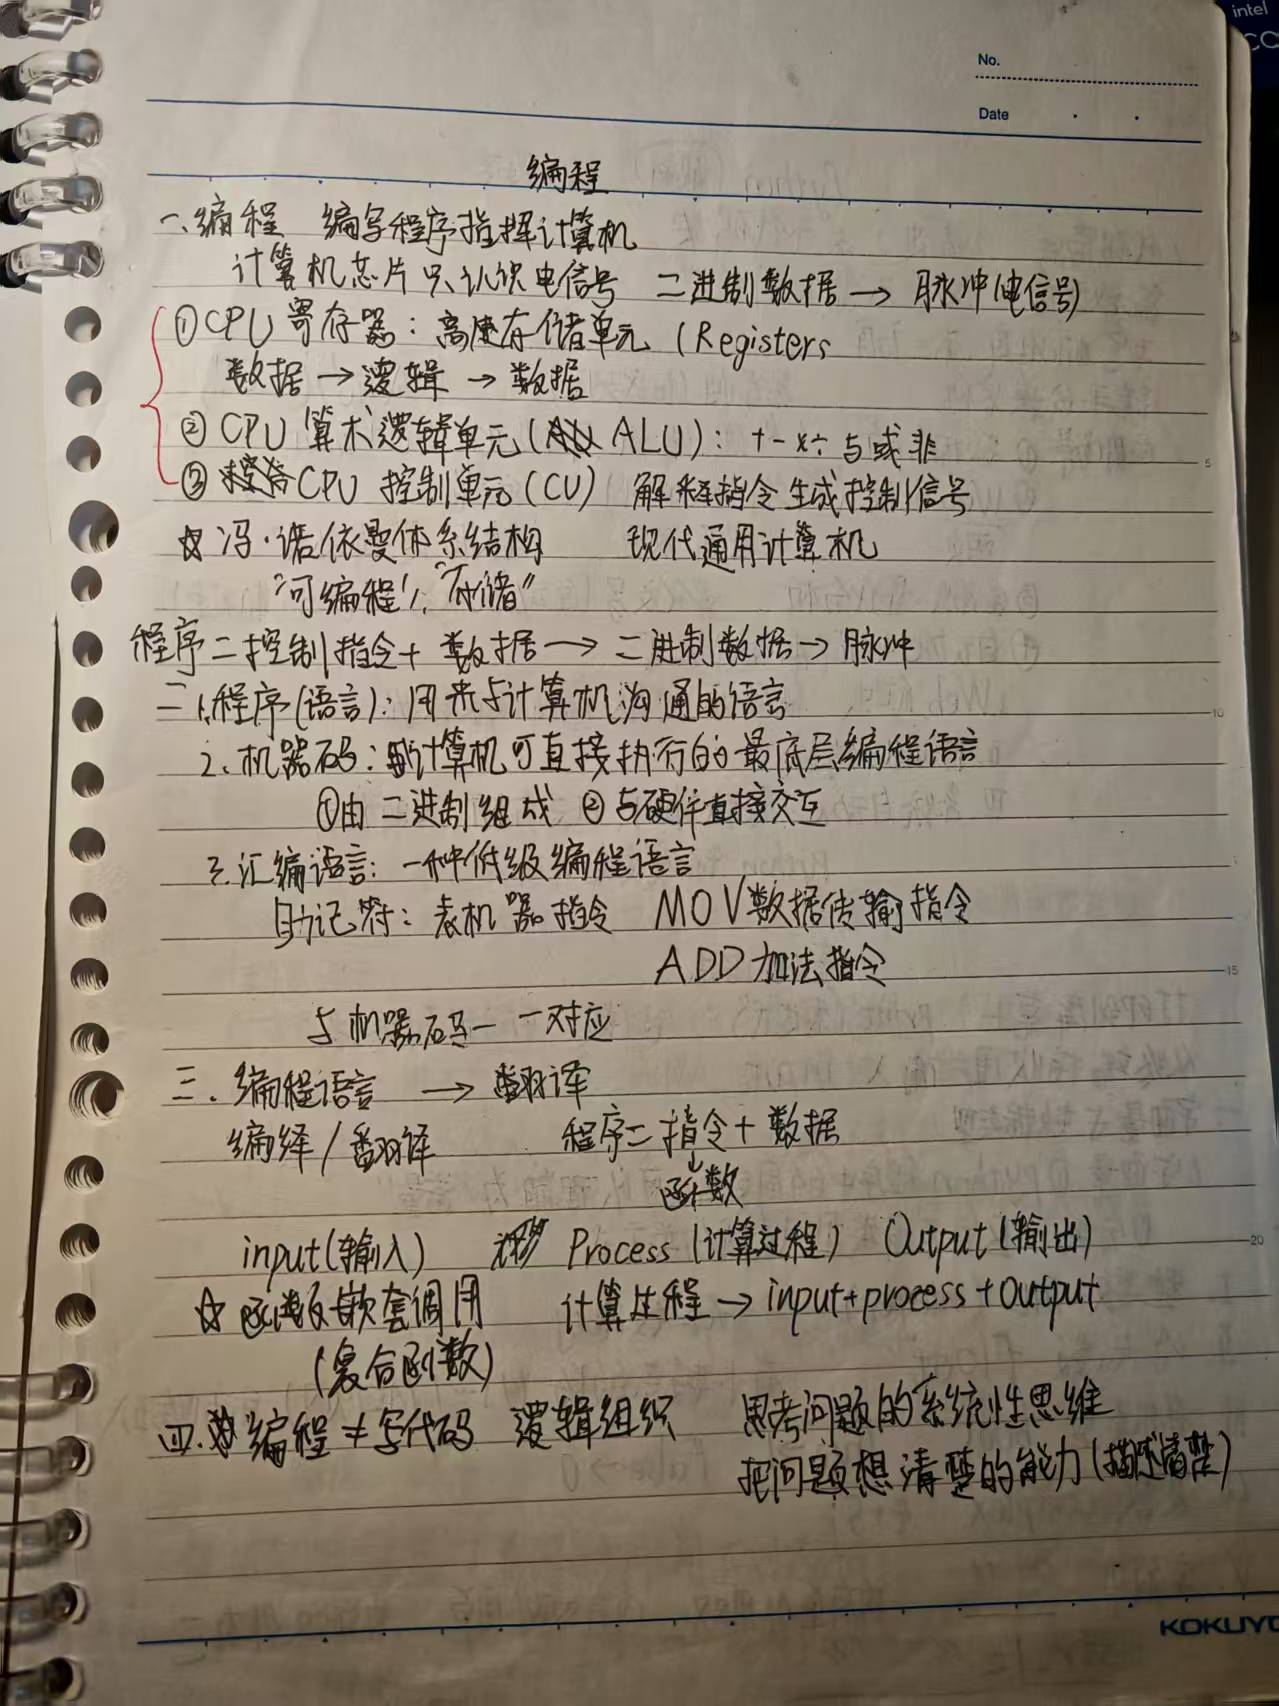 intel
No.
Date
编程
一、编程 编写程序指挥计算机
计算机芯片只认识电信号 二进制数据→脉冲(电信号)
①CPU 寄存器：高速存储单元 (Registers
数据→逻辑→数据
②CPU 算术逻辑单元(ALU)：+-×÷与或非
③CPU 控制单元(CU) 解释指令生成控制信号
☆冯·诺依曼体系结构 现代通用计算机
"可编程"、"存储"
程序=控制指令+数据→二进制数据→脉冲
二、1.程序(语言)：用来与计算机沟通的语言
2.机器码：计算机可直接执行的最底层编程语言
①由二进制组成 ②与硬件直接交互
3.汇编语言：一种低级编程语言
助记符：表机器指令 MOV数据传输指令
ADD加法指令
与机器码一一对应
三.编程语言→翻译
编绎/翻译 程序=指令+数据
↓
函数
input(输入) Process(计算过程) Output(输出)
☆函数嵌套调用 计算过程→input+process+output
(复合函数)
四.编程≠写代码 逻辑组织 思考问题的系统性思维
把问题想清楚的能力(描述清楚)
5
10
15
20
KOKUYO